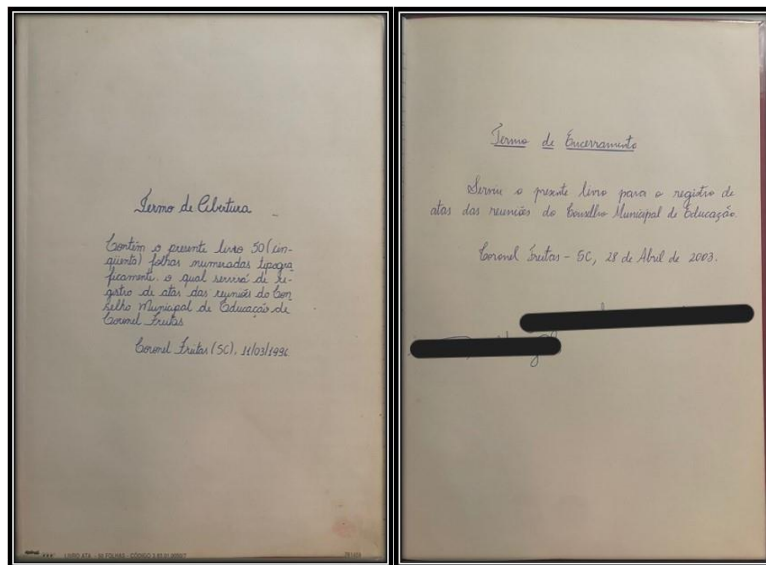 Termo de Abertura
Contém o presente livro 50 (cin-
qüenta) folhas numeradas tipogra
ficamente, o qual servirá de re-
gistro de atas das reuniões do Con
selho Municipal de Educação de
Coronel Freitas
Coronel Freitas (SC), 11/03/199
LIVRO ATA - 50 FOLHAS - CÓDIGO
Termo de Encerramento
Serviu o presente livro para o registro de
atas das reuniões do Conselho Municipal de Educação.
Coronel Freitas - SC, 28 de Abril de 2003.